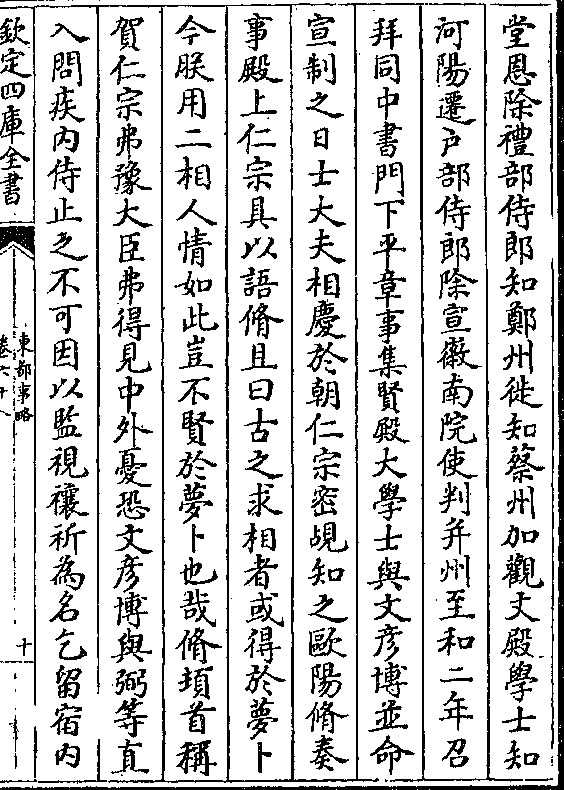 堂恩除禮部侍郎知鄭州徙知蔡州加觀文殿學士知
河陽遷户部侍郎除宣徽南院使判并州至和二年召
拜同中書門下平章事集賢殿大學士與文彦博並命
宣制之日士大夫相慶於朝仁宗密覘知之歐陽脩奏
事殿上仁宗具以語脩且曰古之求相者或得於夢卜
今朕用二相人情如此豈不賢於夢卜也哉脩頓首稱
賀仁宗弗豫大臣弗得見中外憂恐文彦博與弼等直
入問疾内侍止之不可因以監視禳祈為名乞留宿内
欽定四庫全書
東都事略
卷六十八
十